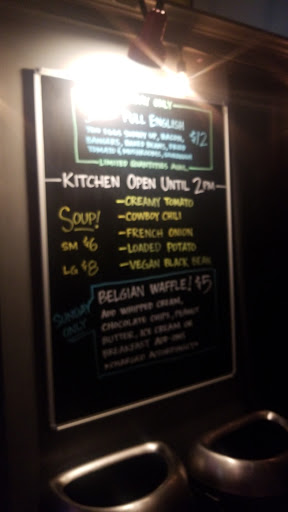 ONLY
FULL ENGLISH
TWO EGGS SUNNY UP, BACON,
BANGERS, BAKED BEANS, FRIED
TOMATO & MUSHROOMS,
$12
LIMITED QUANTITIES AVAIL.
KITCHEN OPEN UNTIL 2PM
SOUP!
SM $6
LG $8
-CREAMY TOMATO
-COWBOY CHILI
-FRENCH ONION
-LOADED POTATO
-VEGAN BLACK BEAN
SUNDAY
ONLY
BELGIAN WAFFLE! $5
ADD WHIPPED CREAM,
CHOCOLATE CHIPS, PEANUT
BUTTER, ICE CREAM OR
BREAKFAST ADD-ONS
*CHARGED ACCORDINGLY*